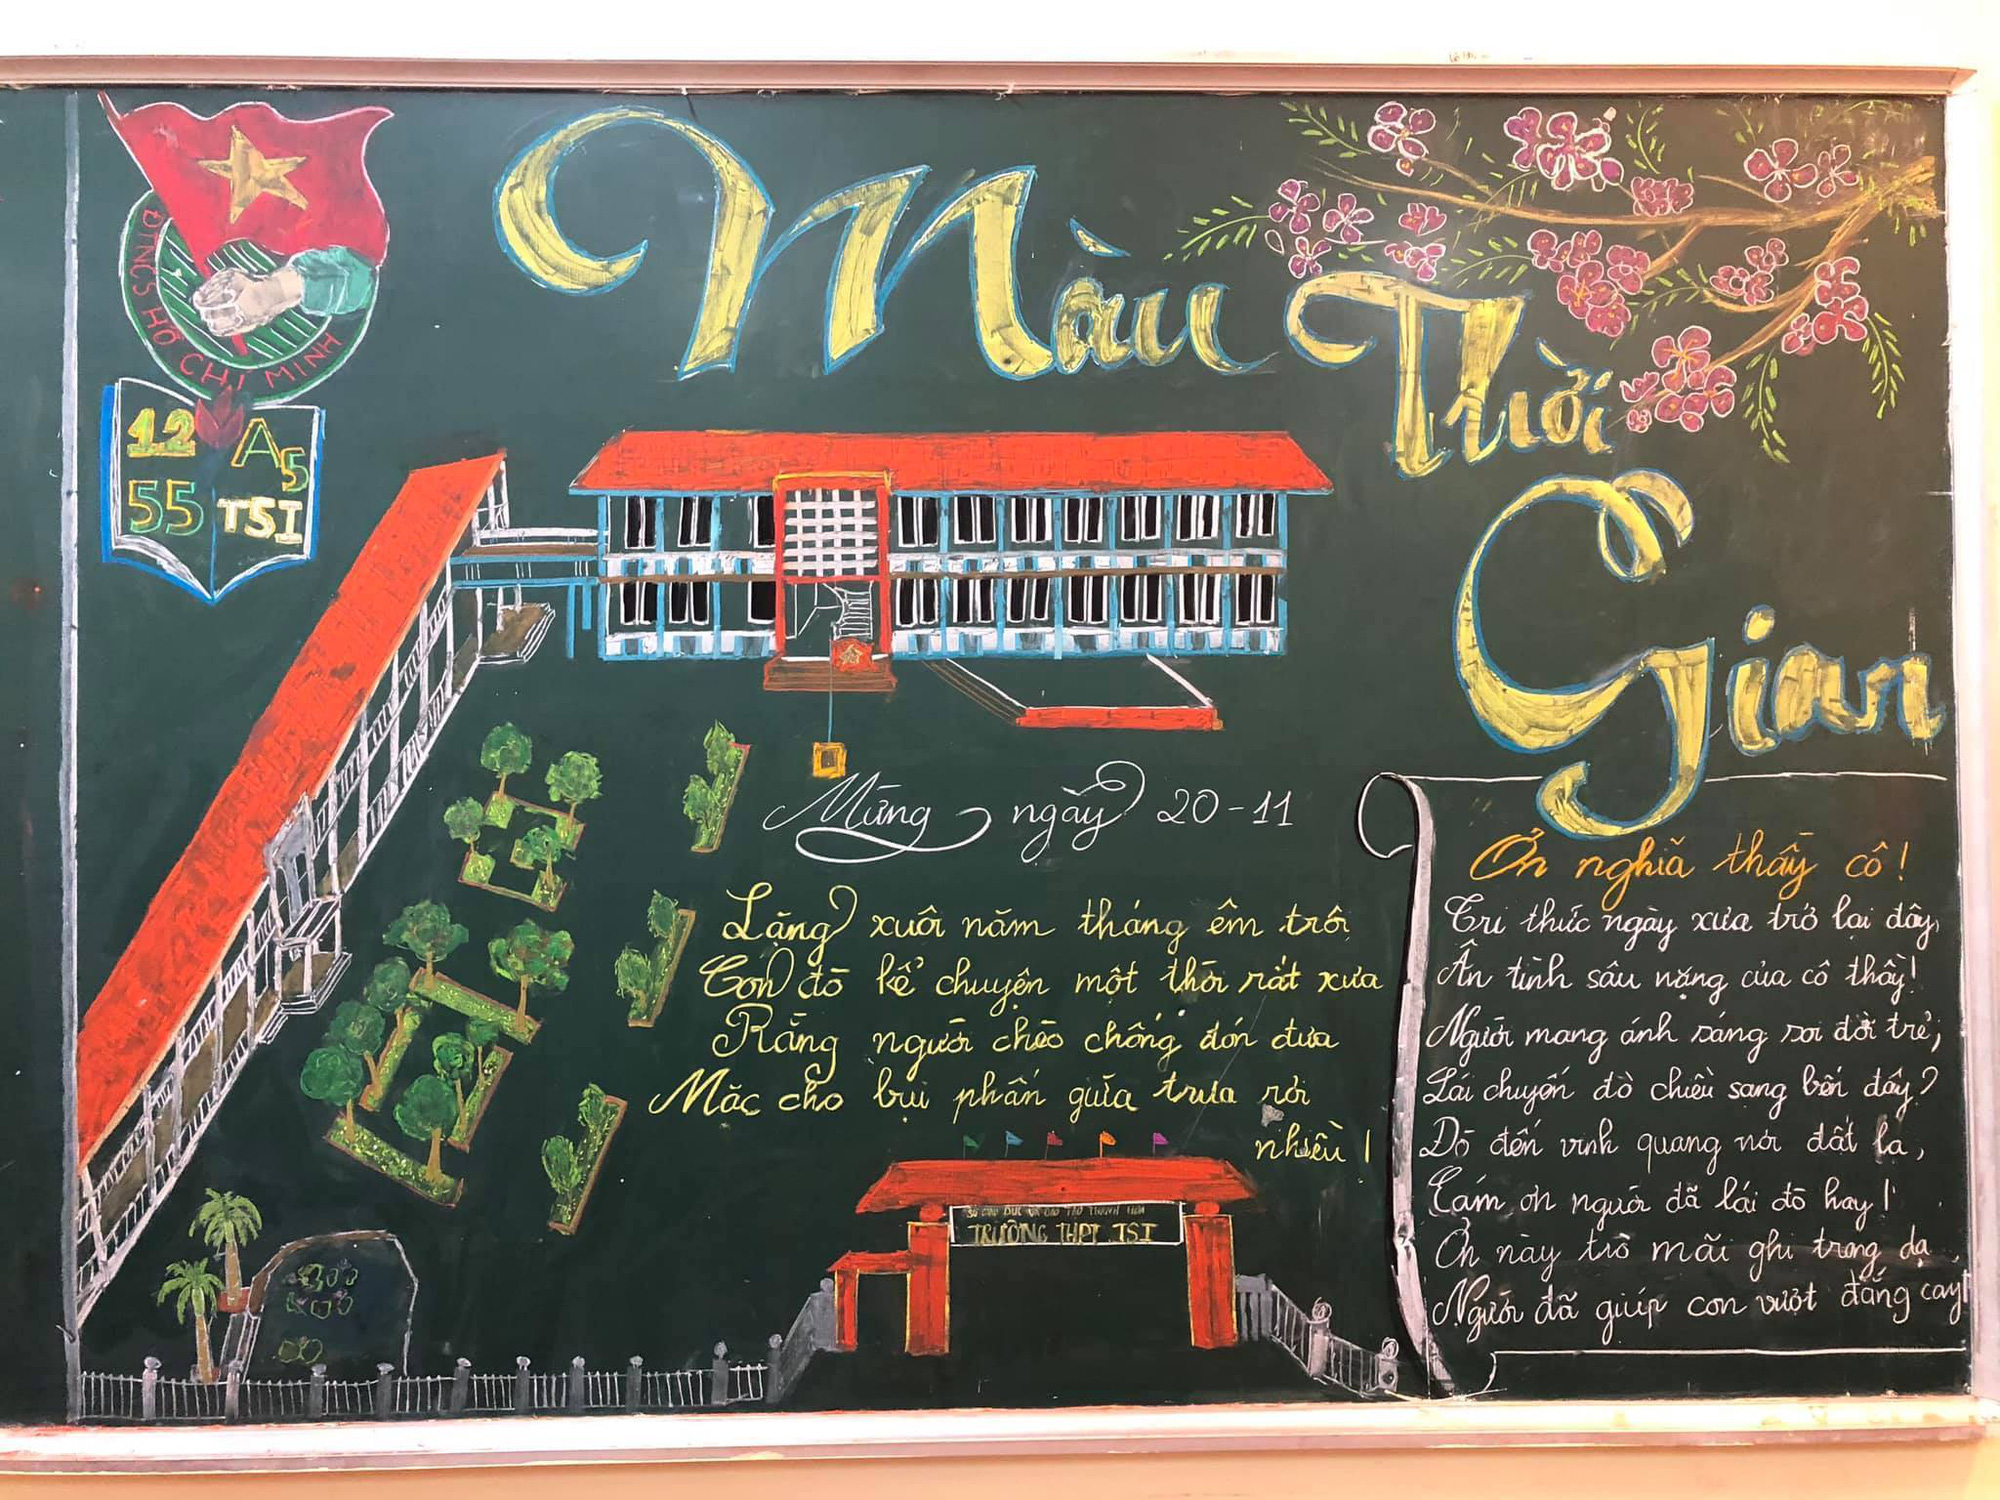 ĐTNCS HỒ CHÍ MINH
12 A5
55 TSI
Màu
Thời
Gian
Mừng ngày 20-11
Lặng xuôi năm tháng êm trôi
Con đò kể chuyện một thời rất xưa
Rằng người chèo chống đón đưa
Mặc cho bụi phấn giữa trưa rơi
nhiều!
SỞ GIÁO DỤC VÀ ĐÀO TẠO THANH HÓA
TRƯỜNG THPT TSI
Ơn nghĩa thầy cô!
Tri thức ngày xưa trở lại đây,
Ân tình sâu nặng của cô thầy!
Người mang ánh sáng soi đời trẻ;
Lái chuyến đò chiều sang bến đây?
Đò đến vinh quang nơi đất lạ,
Cám ơn người đã lái đò hay!
Ơn này trò mãi ghi trong dạ
Người đã giúp con vượt đắng cay!